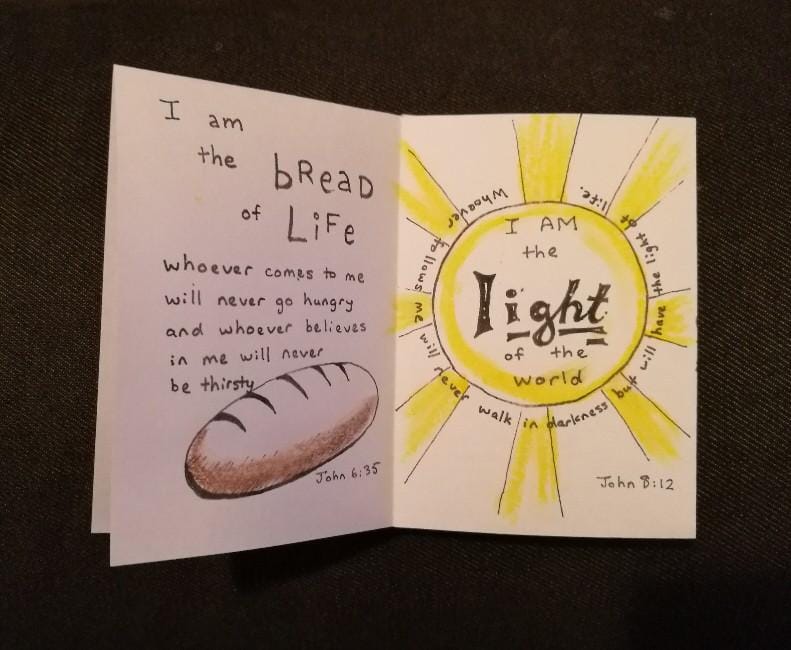 I am
the bREAD
of LiFe
whoever comes to me
will never go hungry
and whoever believes
in me will never
be thirsty
John 6:35
I AM
the
light
of the
world
Whoever follows me will never walk in darkness but will have the light of life.
John 8:12